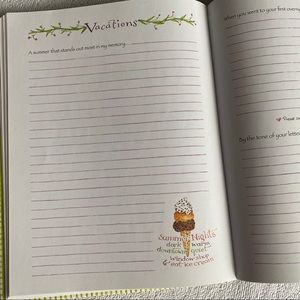 Vacations
A summer that stands out most in my memory
Summer Nights
dark & warm
downtown quiet
window shop
& eat ice cream
when you went to your first overn
By the tone of your letter